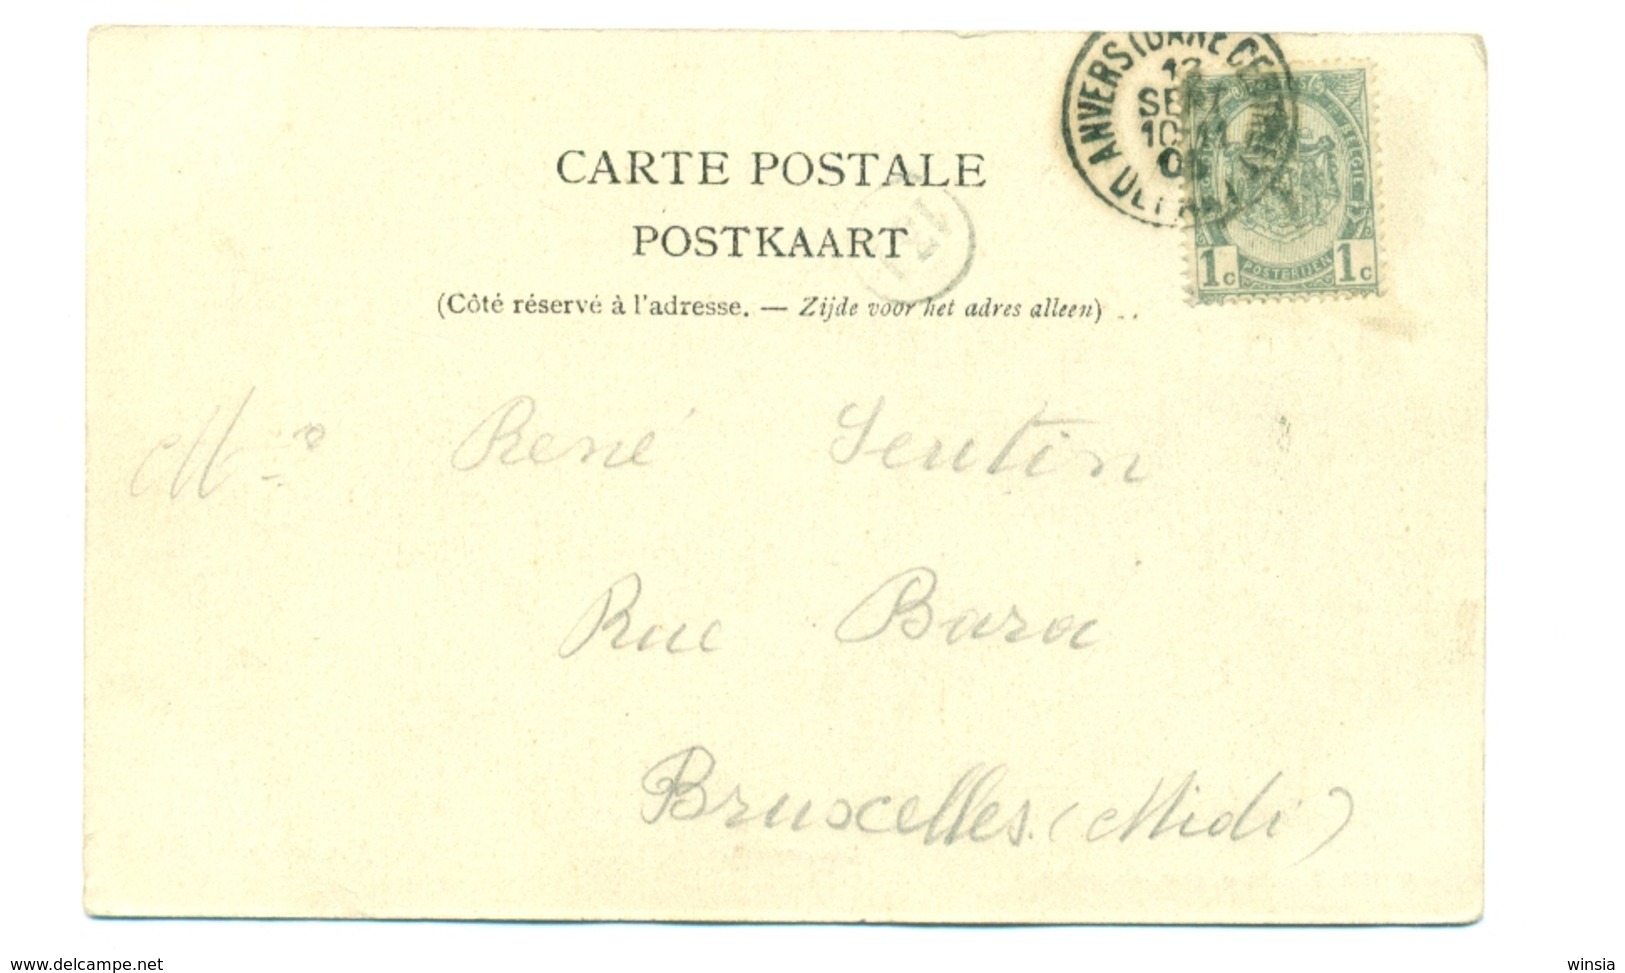 ANVERS (GARE CENTRALE)
12
SEPT
10-11
DÉPART
BELGIE
POSTERIJEN
1c 1c
CARTE POSTALE
POSTKAART
(Côté réservé à l'adresse. — Zijde voor het adres alleen)
René Sentin
Rue Bara
Bruxelles (Midi)
www.delcampe.net
winsia